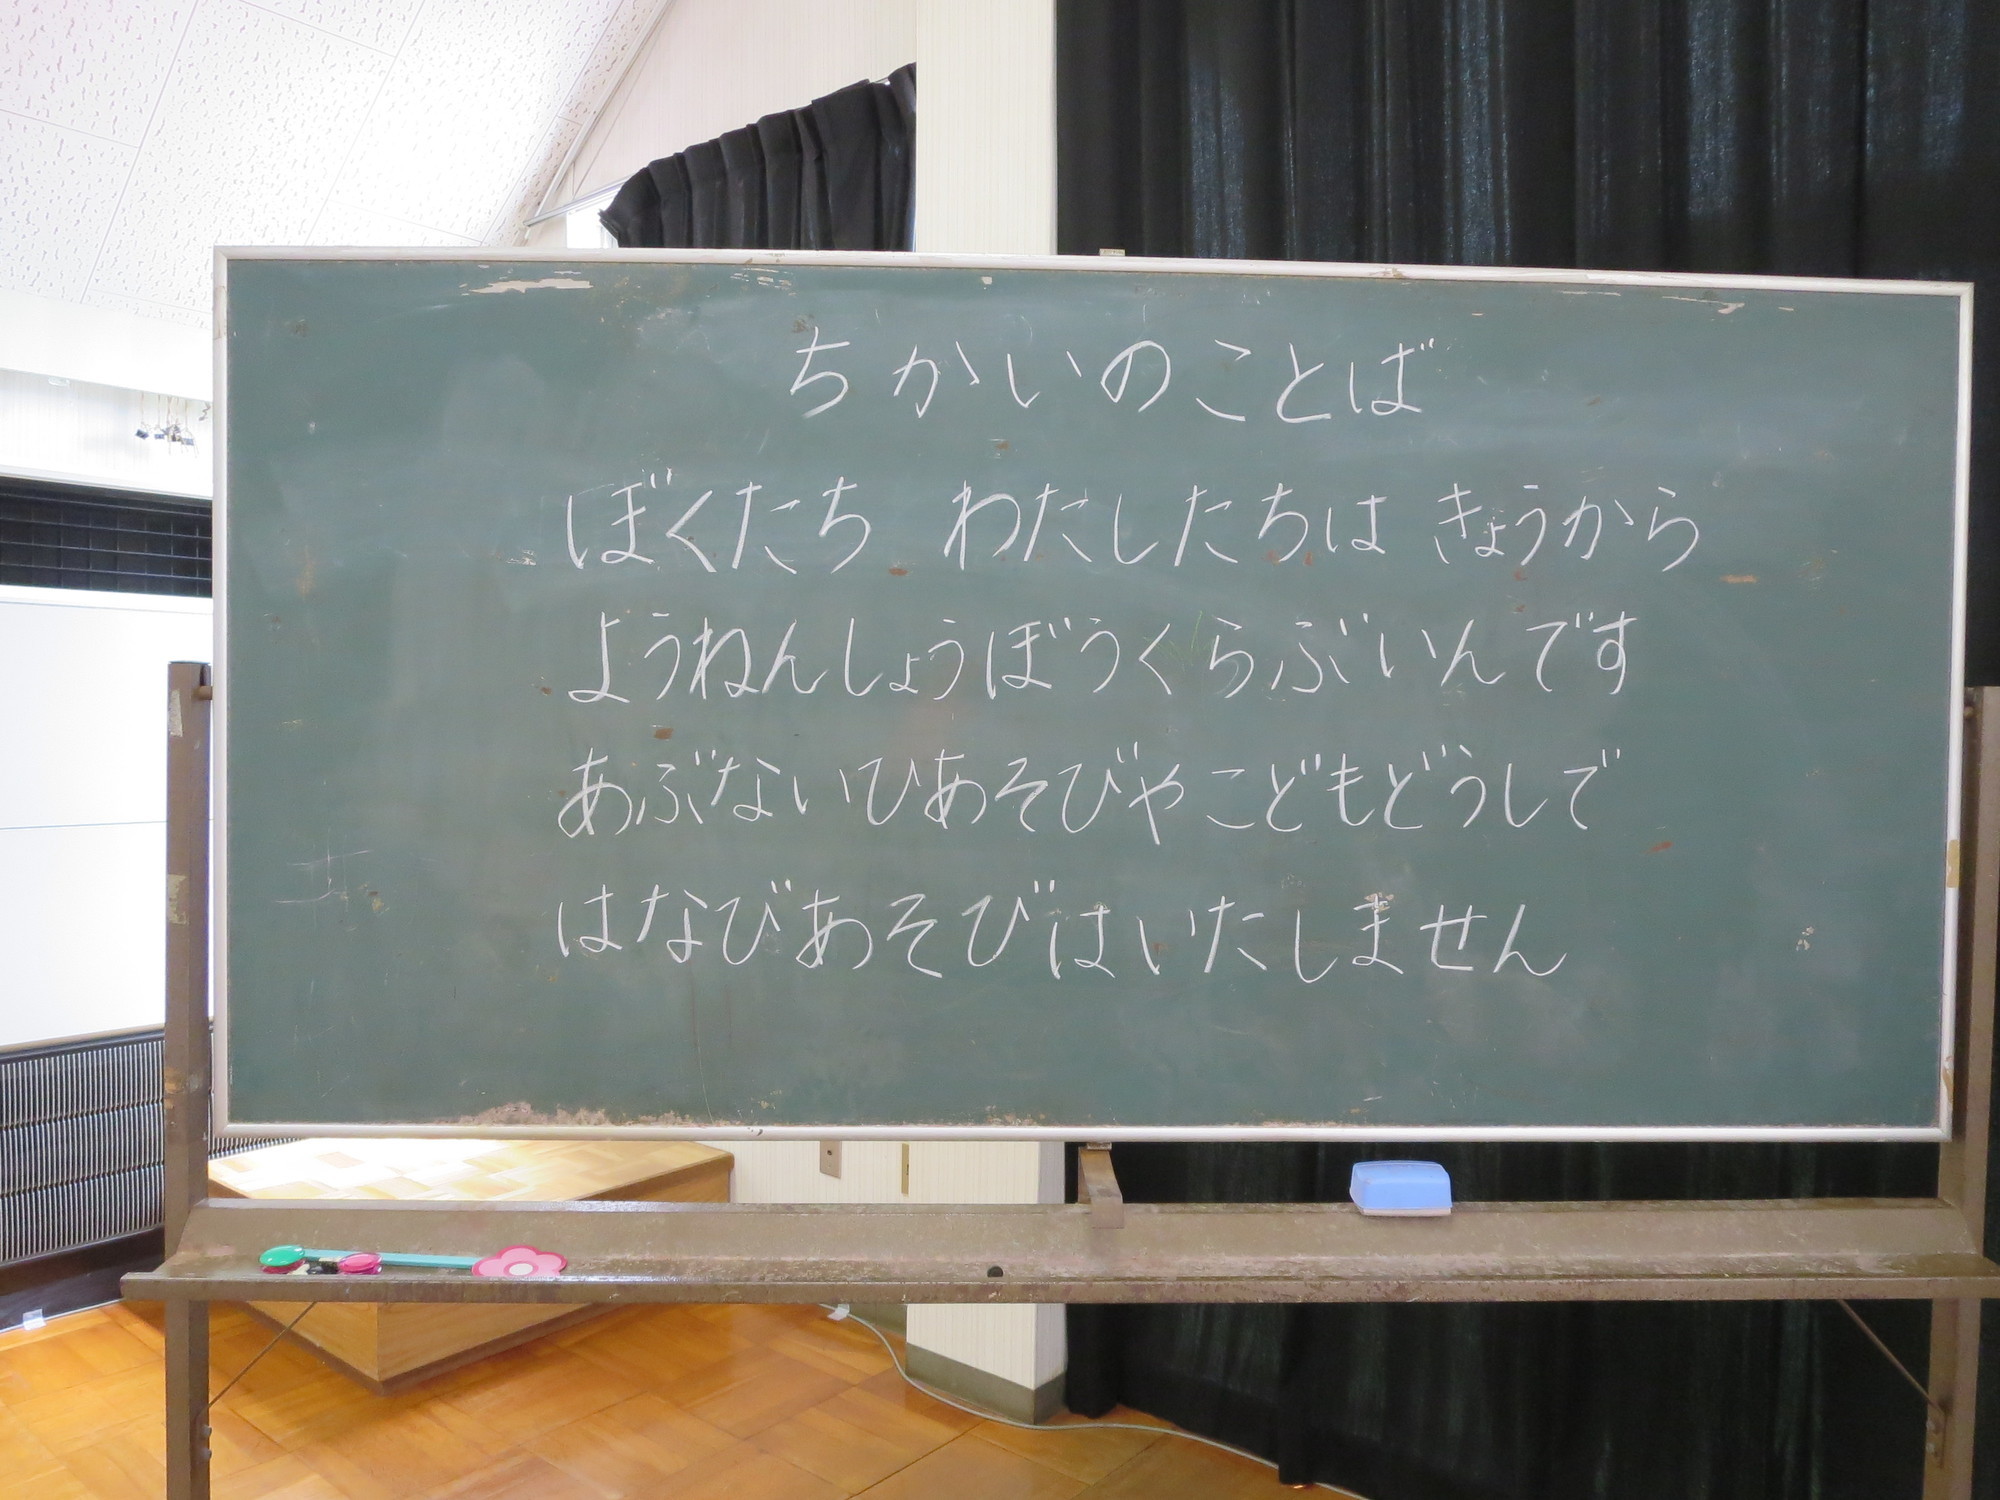 ちかいのことば
ぼくたち わたしたちは きょうから
ようねんしょうぼうくらぶいんです
あぶないひあそびやこどもどうしで
はなびあそびはいたしません